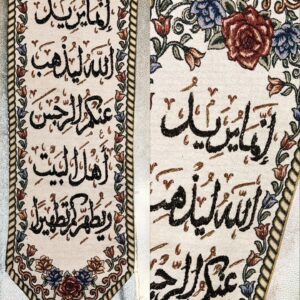 إنما يريد
الله ليذهب
عنكم الرجس
أهل البيت
ويطهركم تطهيرا
إنما يريد
الله ليذهب
عنكم الر